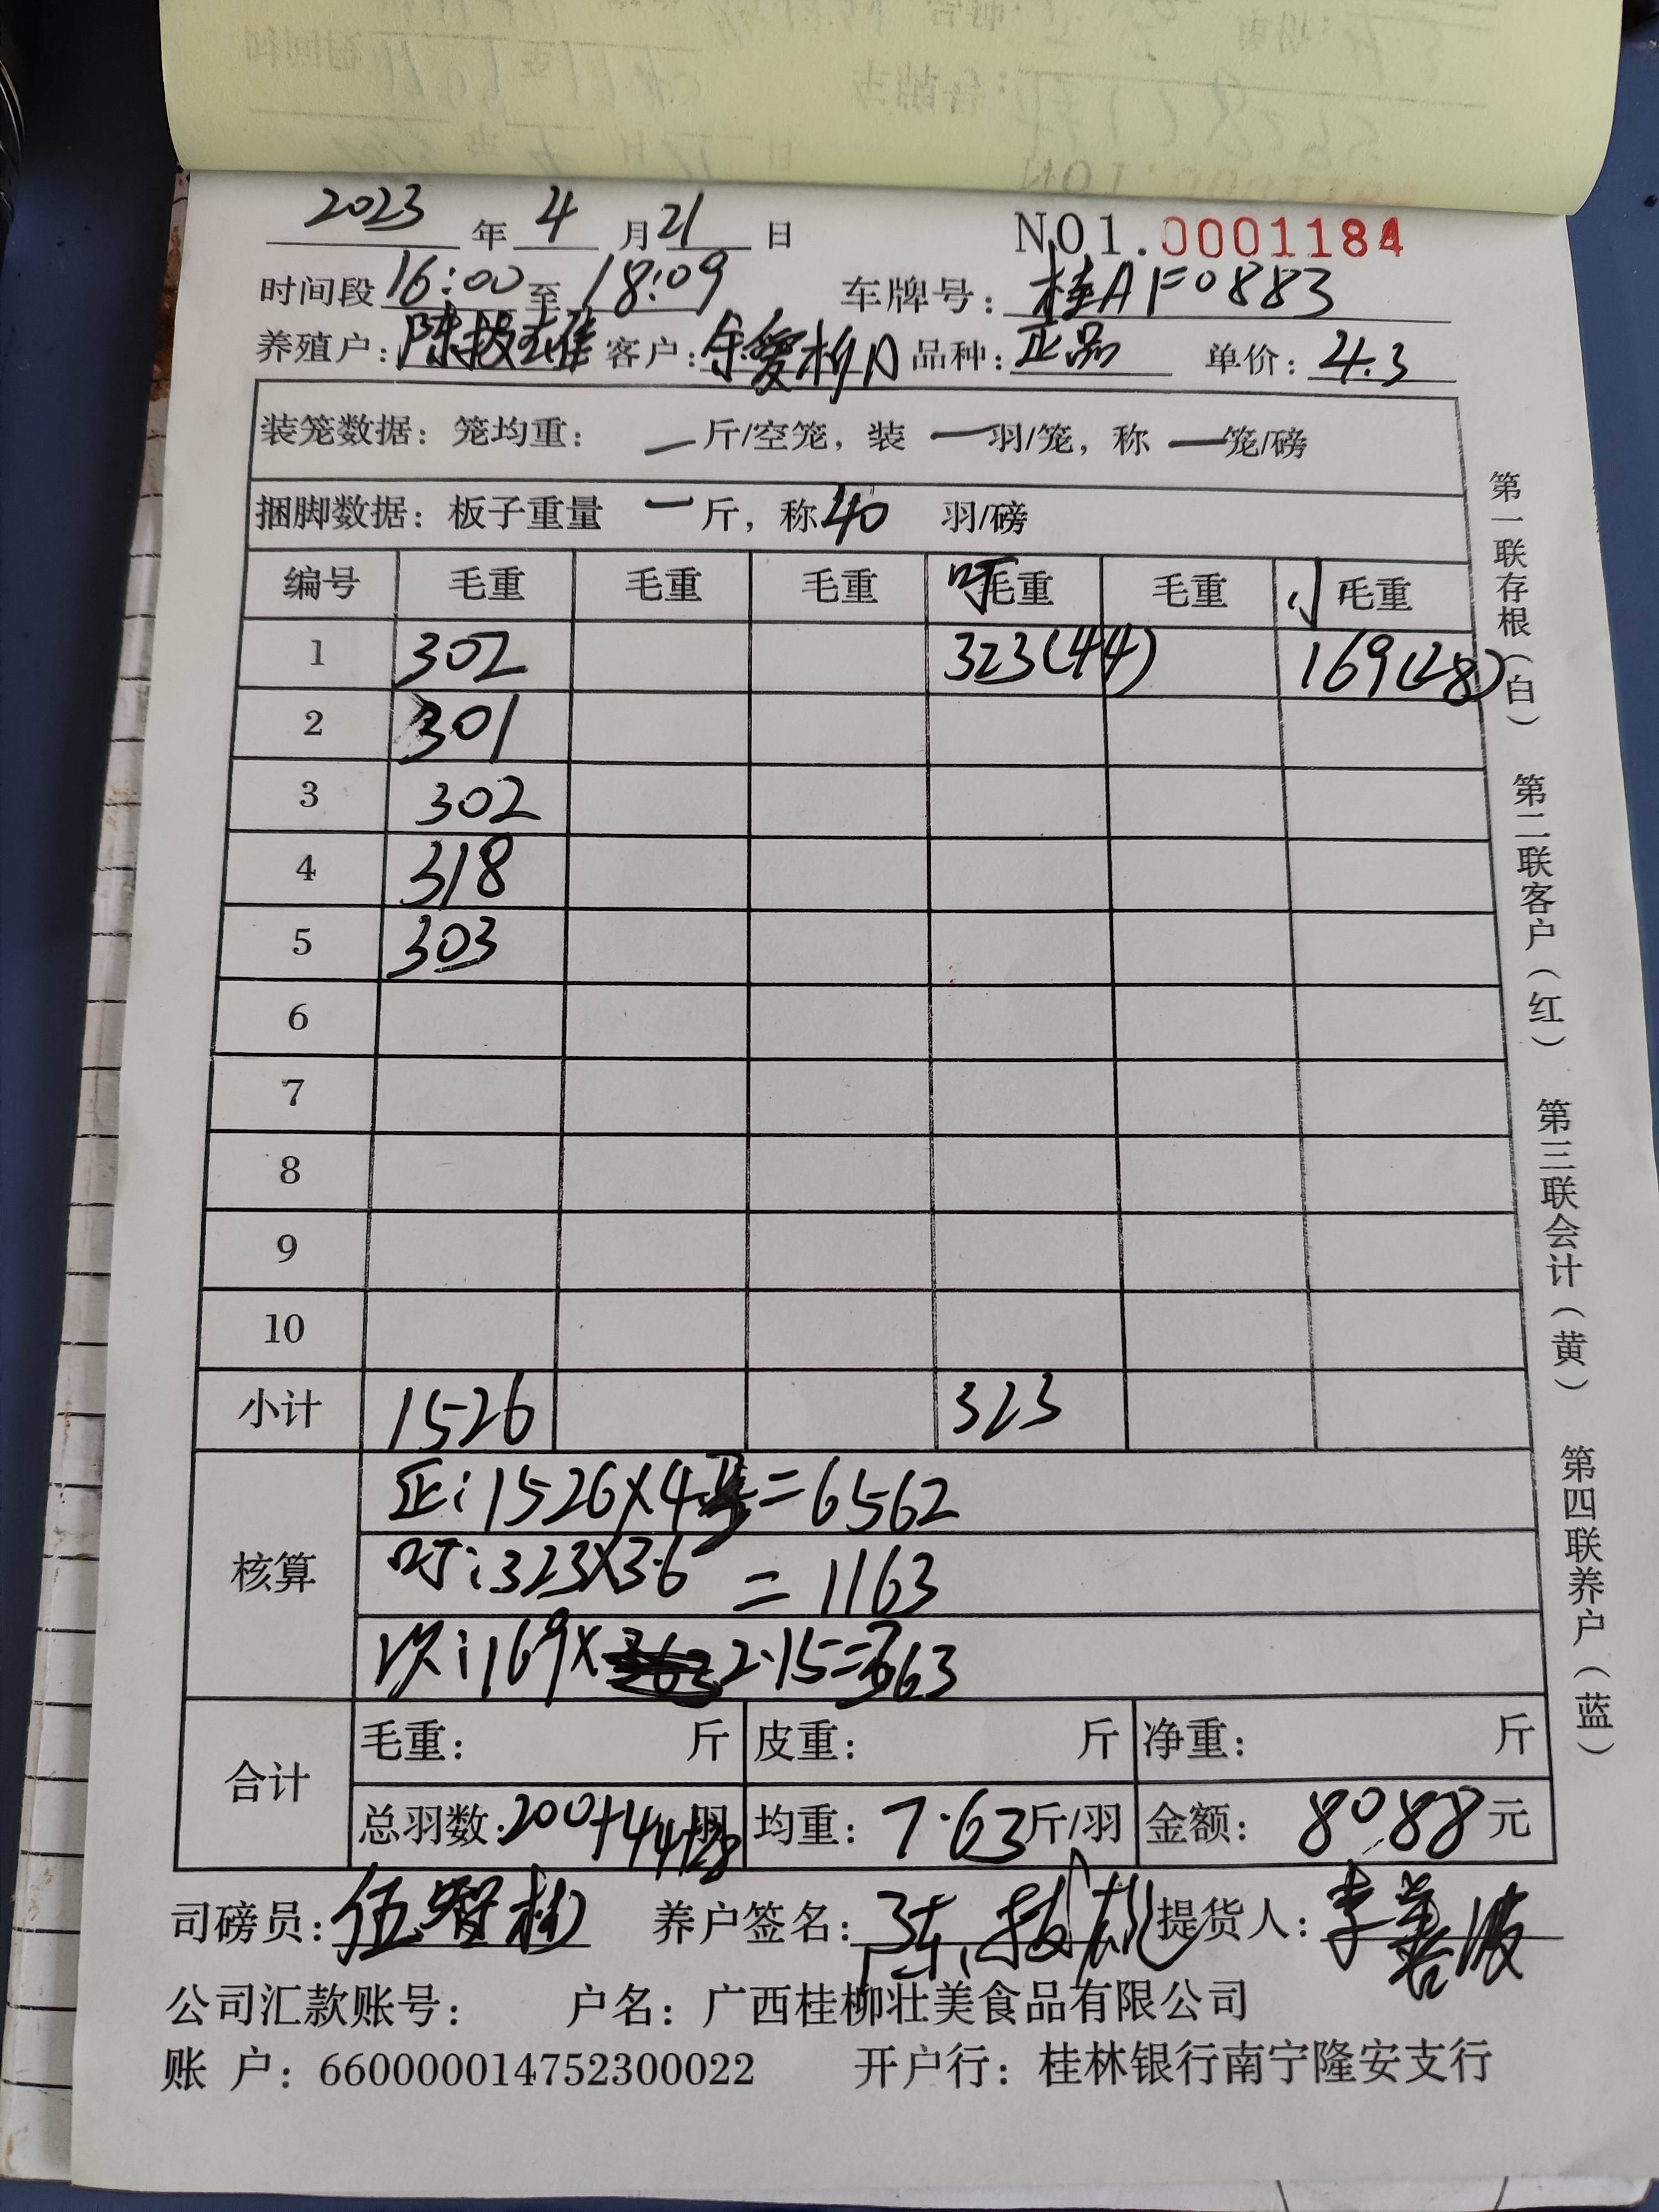 2023 年 4 月 21 日 NO1.0001184
时间段 16:00 至 18:09 车牌号: 桂AF0883
养殖户: 陈拔雄 客户: 品种: 正品 单价: 4.3
装笼数据: 笼均重: 一 斤/空笼, 装 一 羽/笼, 称 一 笼/磅
捆脚数据: 板子重量 一 斤, 称 40 羽/磅
编号 毛重 毛重 毛重 吋 毛重 毛重 小 毛重
1 302 323(44) 169(28)
2 301
3 302
4 318
5 303
6
7
8
9
10
小计 1526 323
核算
正:1526×4.3=6562
吋:323×3.6=1163
次:169×2.15=363
合计
毛重: 斤 皮重: 斤 净重: 斤
总羽数:200+44+28 羽 均重: 7.63 斤/羽 金额: 8088 元
司磅员: 伍智 养户签名: 陈拔雄 提货人: 李
公司汇款账号: 户名: 广西桂柳壮美食品有限公司
账 户: 660000014752300022 开户行: 桂林银行南宁隆安支行
第一联存根(白) 第二联客户(红) 第三联会计(黄) 第四联养户(蓝)